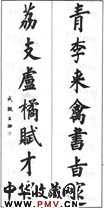 青李来禽書旨
荔支盧橘賦才
中华收藏网
www.PMV.CN